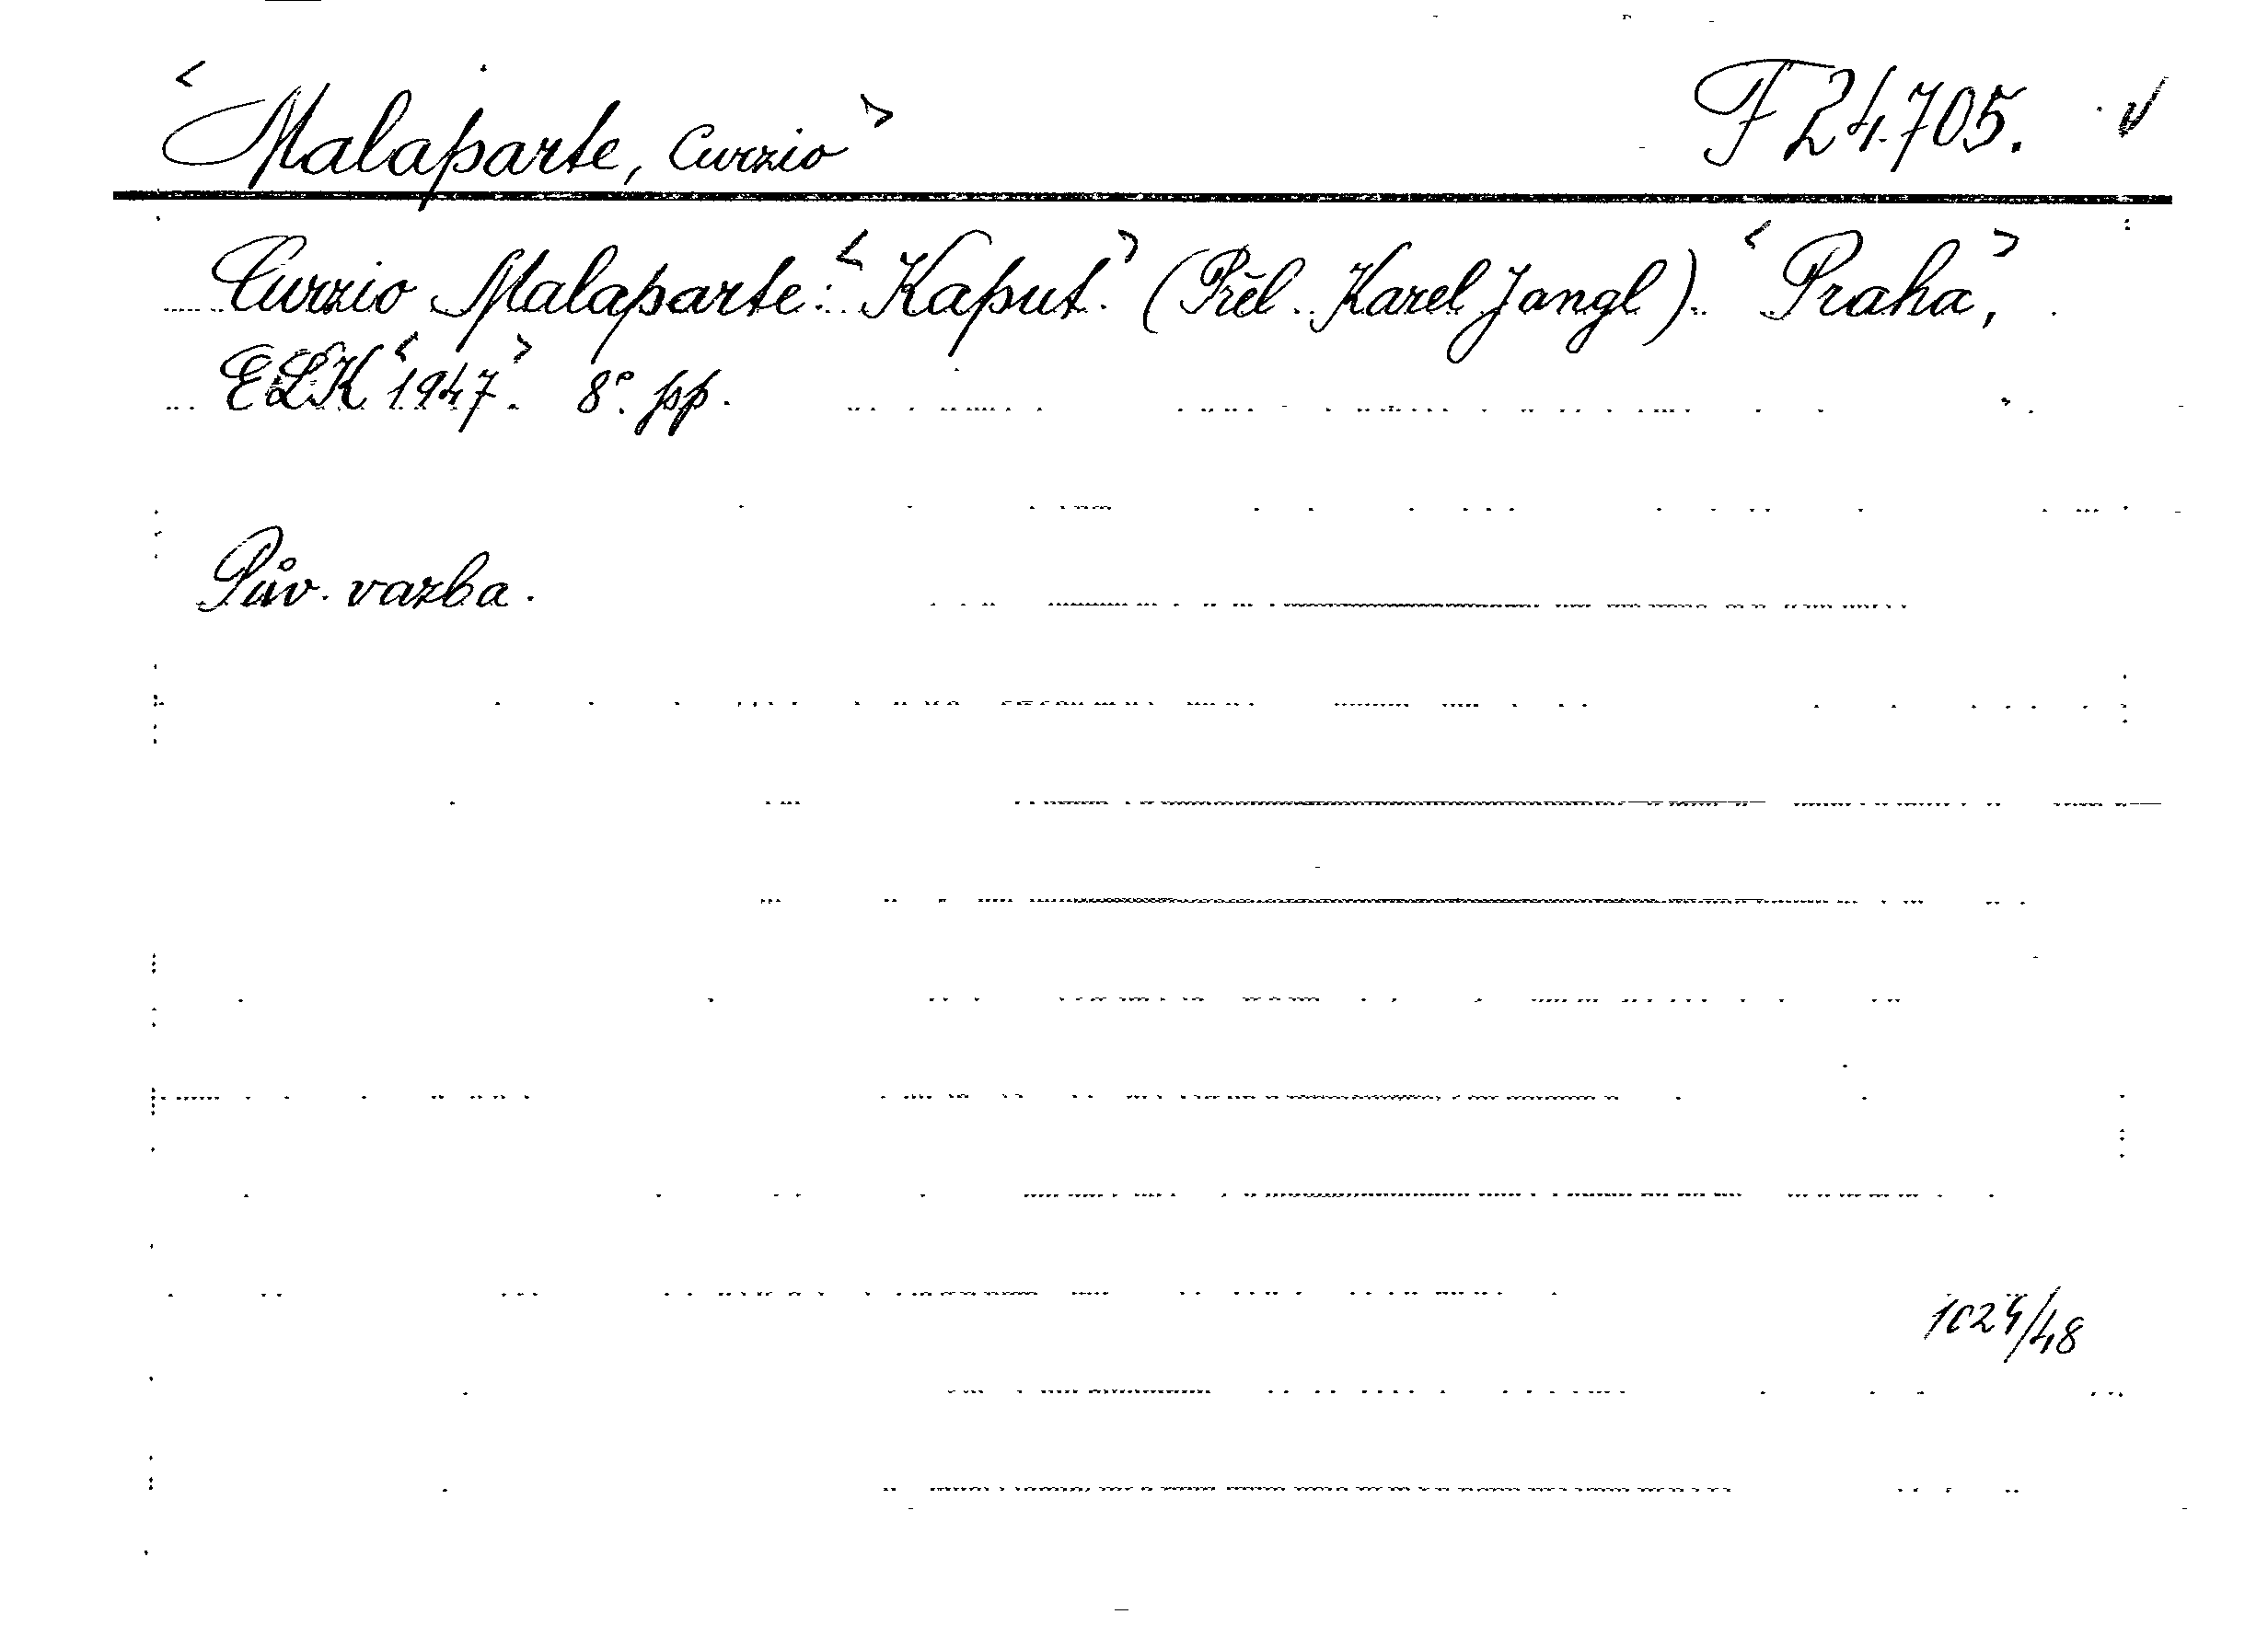 <Malaparte, Curzio> F 24.705. √
Curzio Malaparte: <Kaput.> (Přel. Karel Jangl). <Praha,>
ELK <1947>. 8°. pp.
Pův. vazba.
1024/48